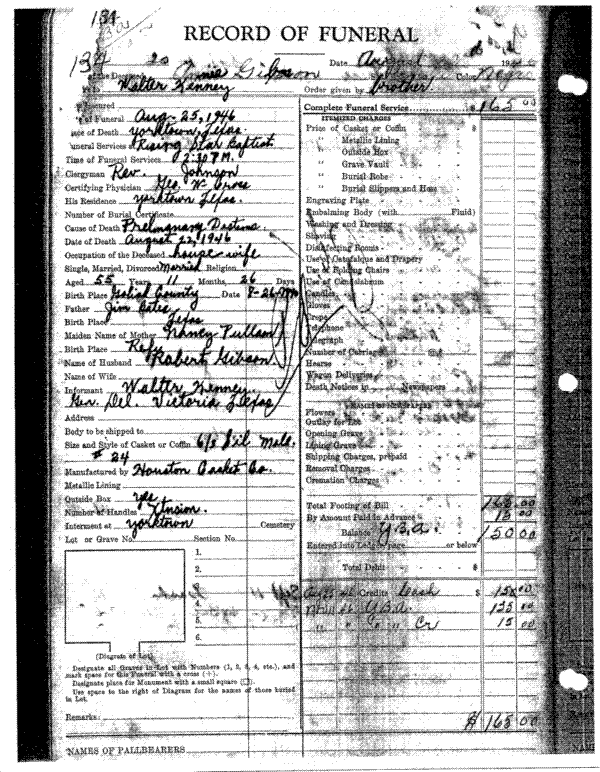 134
RECORD OF FUNERAL
134
Date August 1946
of the Deceased Annie Gibson Color Negro
Walter Kenney Order given by brother
Insured
of Funeral Aug. 25, 1946
Place of Death Yorktown, Texas
Funeral Services at Rising Star Baptist
Time of Funeral Services 2:30 P.M.
Clergyman Rev. Johnson
Certifying Physician Geo. W. Cross
His Residence Yorktown Texas.
Number of Burial Certificate
Cause of Death
Date of Death August 22, 1946
Occupation of the Deceased house wife
Single, Married, Divorced Married Religion
Aged 55 Years 11 Months, 26 Days
Birth Place Goliad County Date 8-26-
Father Jim Bates
Birth Place Texas
Maiden Name of Mother Nancy Pullam
Birth Place
Name of Husband Robert Gibson
Name of Wife
Informant Walter Kenney
Gen. Del. Victoria Texas
Address
Body to be shipped to
Size and Style of Casket or Coffin 6/3 Sil
# 24
Manufactured by Houston Casket Co.
Metallic Lining
Outside Box yes
Number of Handles
Interment at Yorktown Cemetery
Lot or Grave No. Section No.
1.
2.
3.
4.
5.
6.
(Diagram of Lot)
Designate all Graves in Lot with Numbers (1, 2, 3, 4, etc.), and
mark space for this Funeral with a cross (+).
Designate place for Monument with a small square (□).
Use space to the right of Diagram for the names of those buried
in Lot.
Remarks:
NAMES OF PALLBEARERS
Complete Funeral Service $ 165 00
ITEMIZED CHARGES
Price of Casket or Coffin $
" Metallic Lining
" Outside Box
" Grave Vault
" Burial Robe
" Burial Slippers and Hose
Engraving Plate
Embalming Body (with Fluid)
Washing and Dressing
Shaving
Disinfecting Rooms
Use of Catafalque and Drapery
Use of Folding Chairs
Use of Candelabrum
Candles
Gloves
Crepe
Telephone
Telegraph
Number of Carriages
Hearse
Wagon Deliveries
Death Notices in Newspapers
NAMES OF NEWSPAPERS
Flowers
Outlay for Lot
Opening Grave
Lining Grave
Shipping Charges, prepaid
Removal Charges
Cremation Charges
Total Footing of Bill 165.00
By Amount Paid in Advance 15 00
Balance Y.B.A. 150 00
Entered into Ledger, page or below
Total Debit $
Credits Cash $ 15 00
Y.B.A. 135 00
" " " Cr 15 00
$ 165 00